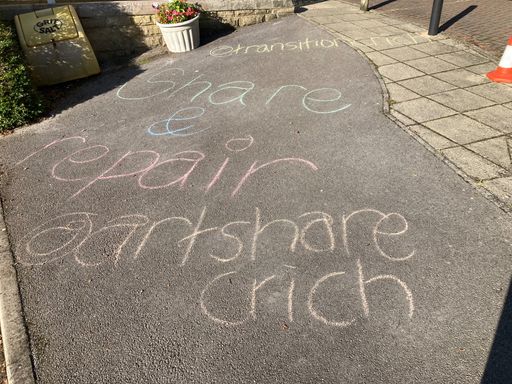 GRIT
SALT
@transition
Share
&
repair
@artshare
crich